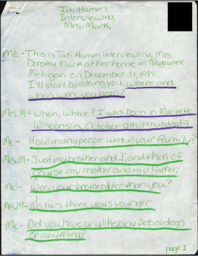 Interviewing
Mrs. Murk.
Me - This is Tati Hamen interviewing Mrs.
Dorothy Murk at her home in Negaunee
Michigan on December 31, 1981.
I'll start by asking you, where and
when were you born?
Mrs. M - When, where? I was born in
Wisconsin, October
Me - How many people were in your family?
Mrs. M - Just my brother and I, and then of
course my mother and my father.
Me - Was your brother older than you?
Mrs. M - No he's three years younger.
Me - Did you have any like any pets or dogs
or anything?
page 1